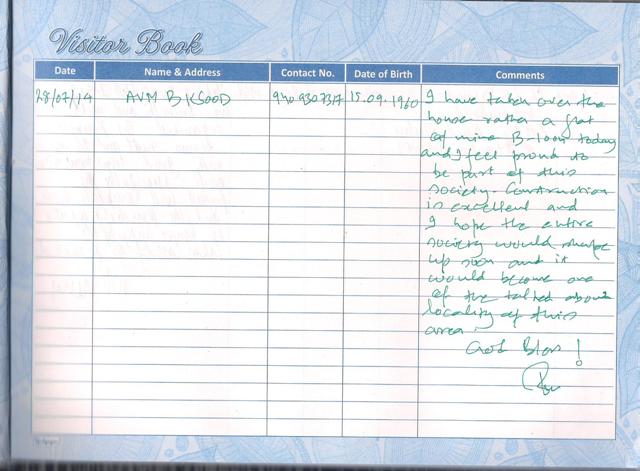 Visitor Book
Date Name & Address Contact No. Date of Birth Comments
28/07/14 AVM B K SOOD 940 930 7317 15.09.1960 I have taken over the
house rather a flat
of mine B-1001 today
and I feel proud to
be part of this
society. Construction
is excellent and
I hope the entire
society would shape
up soon and it
would become one
of the talked about
locality of this
area.
God Bless!